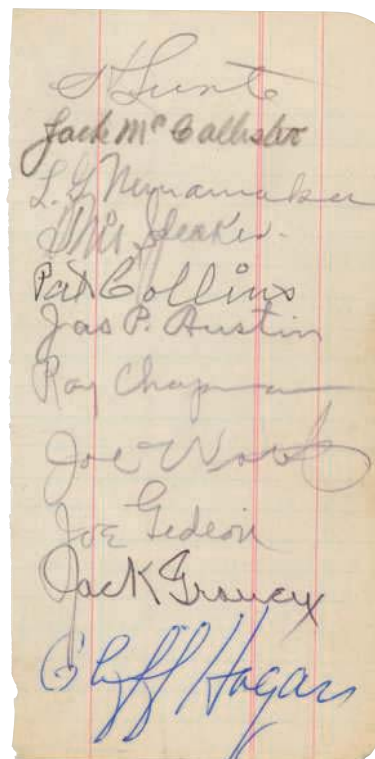 Jack McCallister
L. G. Nunamaker
Tris Speaker.
Pat Collins
Jas P. Austin
Ray Chapman
Joe Wood
Joe Gedeon
Jack Graney
Cliff Hogan